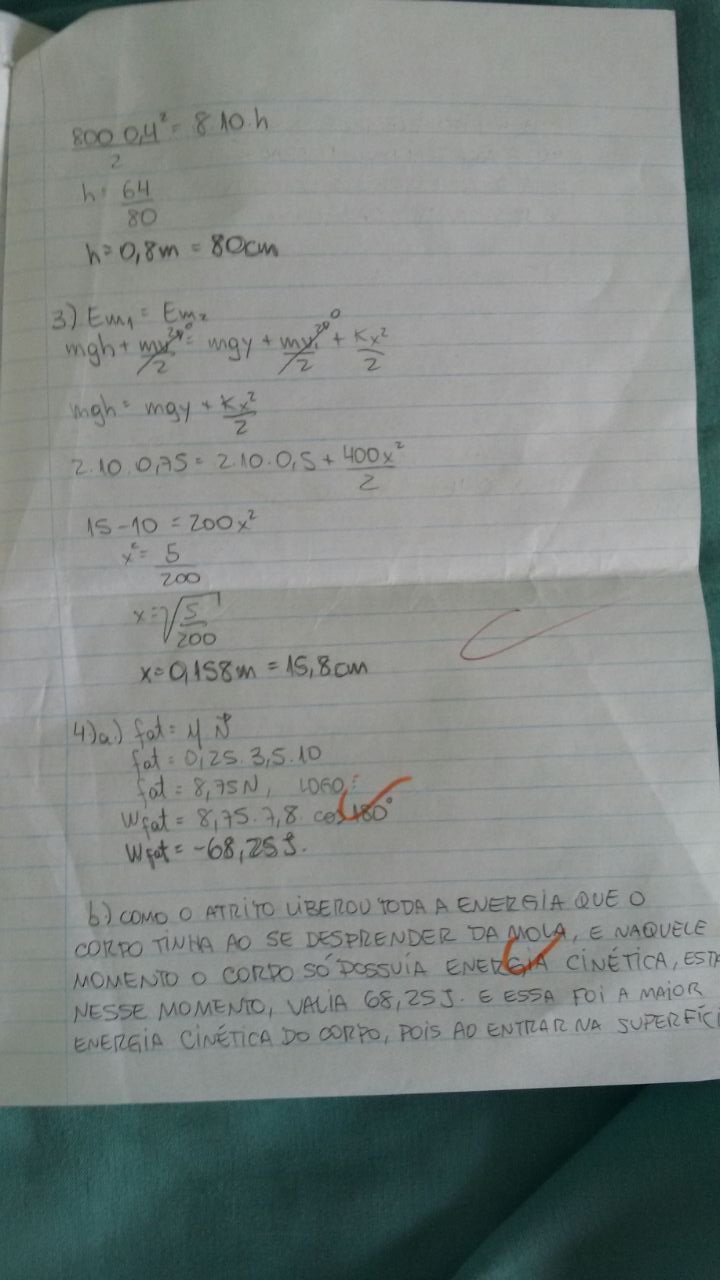 800 0,4² = 8 10.h
2
h = 64
80
h = 0,8m = 80cm
3) Em₁ = Em₂
mgh + mv²/2 = mgy + mv²/2 + Kx²/2
0 0
mgh = mgy + Kx²/2
2.10.0,75 = 2.10.0,5 + 400x²/2
15 - 10 = 200x²
x² = 5/200
x = √5/200
x = 0,158m = 15,8cm
4)a.) fat = μ N
fat = 0,25.3,5.10
fat = 8,75N, LOGO:
Wfat = 8,75.7,8. cos 180°
Wfat = -68,25J.
b) COMO O ATRITO LIBEROU TODA A ENERGIA QUE O
CORPO TINHA AO SE DESPRENDER DA MOLA, E NAQUELE
MOMENTO O CORPO SÓ POSSUÍA ENERGIA CINÉTICA, ESTA
NESSE MOMENTO, VALIA 68,25J. E ESSA FOI A MAIOR
ENERGIA CINÉTICA DO CORPO, POIS AO ENTRAR NA SUPERFÍCI